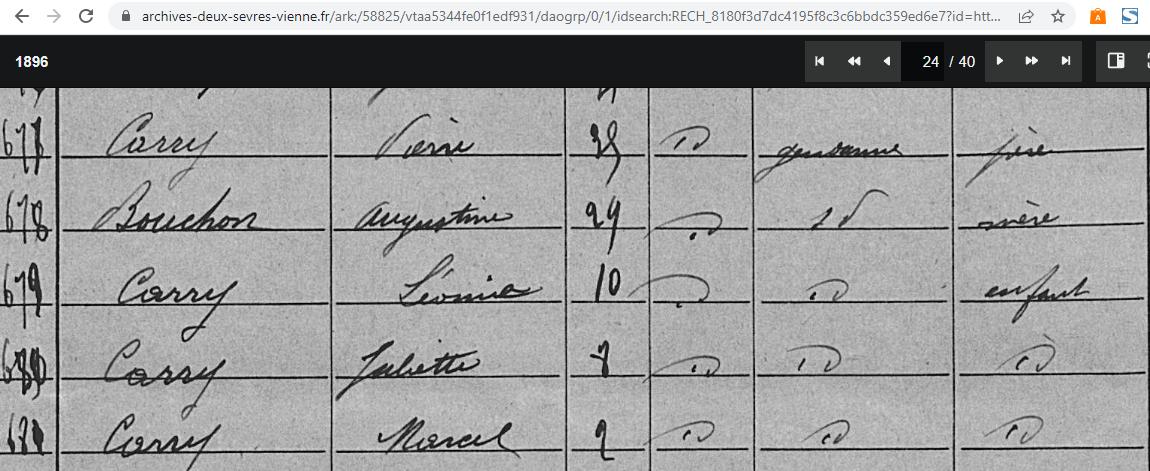 archives-deux-sevres-vienne.fr/ark:/58825/vtaa5344fe0f1edf931/daogrp/0/1/idsearch:RECH_8180f3d7dc4195f8c3c6bbdc359ed6e7?id=htt...
1896 24 / 40
677 Carry Pierre D gendarme père
678 Bouchon Augustine 29 D d mère
679 Carry Léonie 10 D D enfant
680 Carry Juliette D D D
681 Carry Marcel 2 D D D